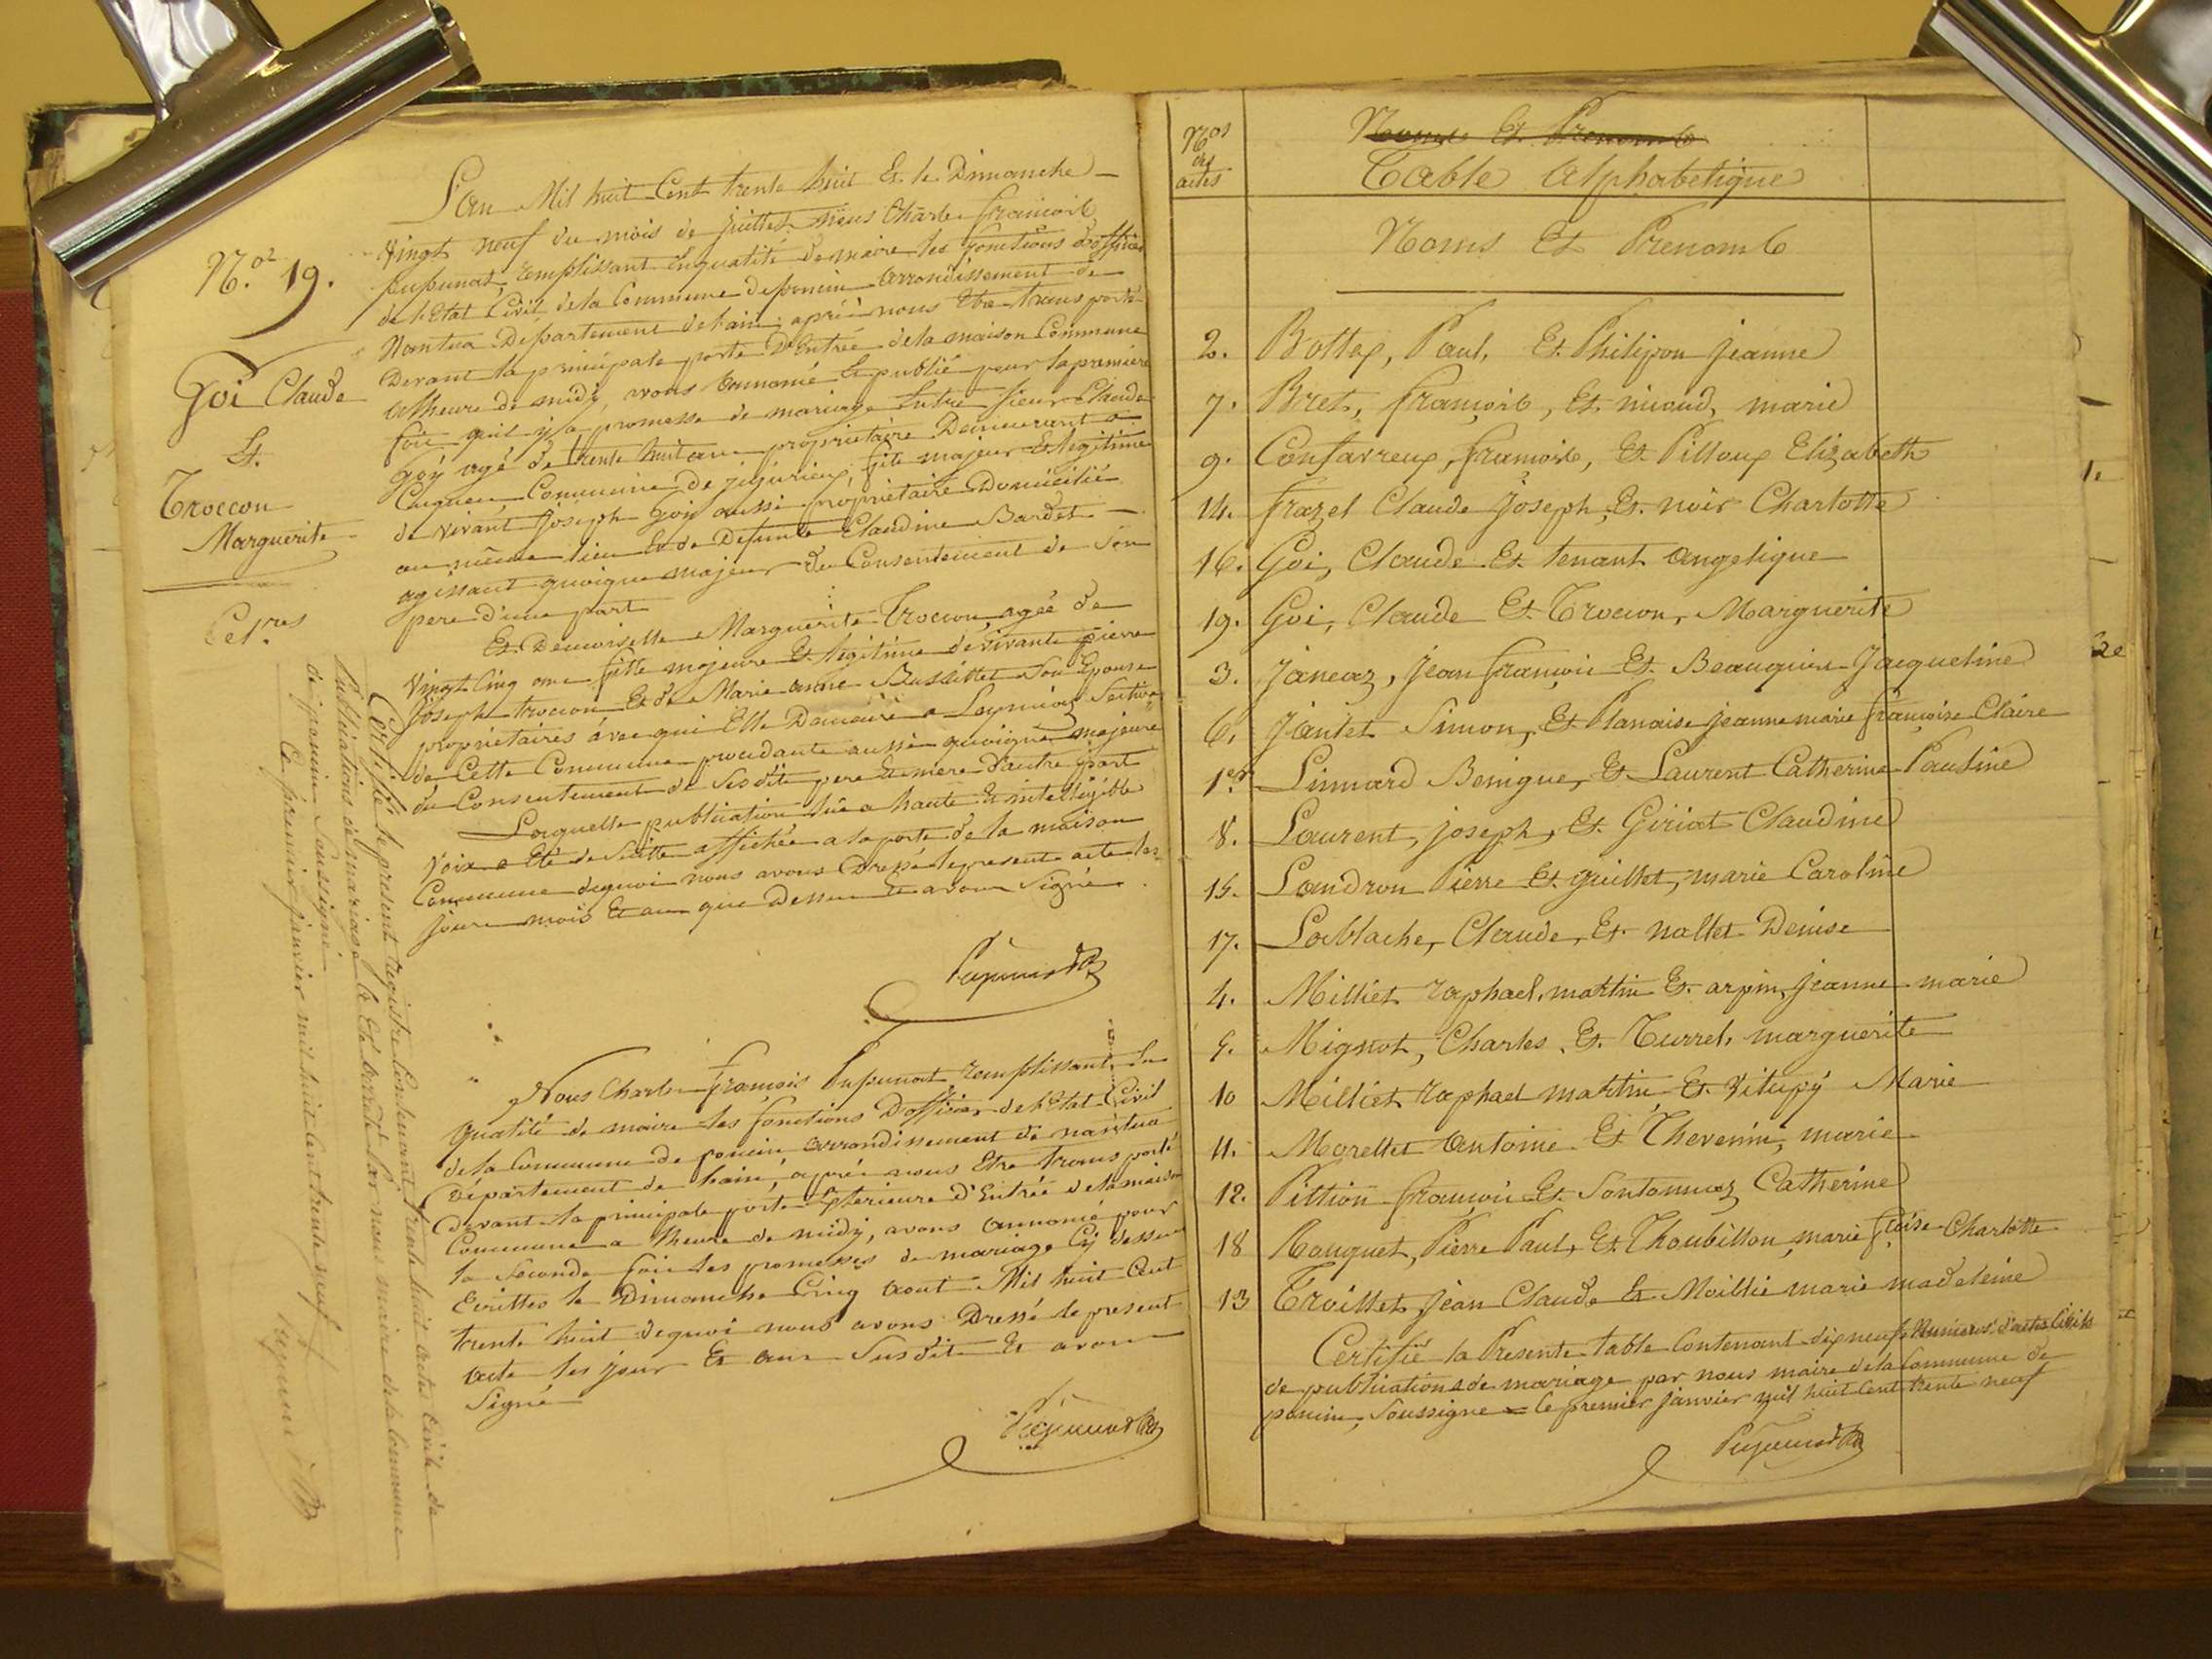 N.os 19.
Goi Claude
Et
Troccon
Marguerite
L'an Mil huit Cent trente huit Et le Dimanche
vingt neuf du mois de juillet nous Charle françois
remplissant en qualité de maire les fonctions d'officier
de l'Etat Civil de la Commune de poncin arrondissement de
Nantua Departement de l'ain, aprés nous Etre transporté
Devant la principale porte D'Entrée de la maison Commune
a l'heure de midy, avons annoncé Et publié pour la premiere
fois qu'il y a promesse de mariage Entre sieur Claude
Goÿ agé de trente huit ans proprietaire Demeurant a
Commune de jujurieux, fils majeur Et legitime
de vivant Joseph Goÿ aussi proprietaire Domicilié
au même lieu Et de Defunte Claudine Bardet
agissant quoique majeur du Consentement de Son
pere d'une part
Et Demoiselle Marguerite Troccon, agée de
Vingt Cinq ans fille majeure Et legitime de vivants pierre
Joseph troccon Et de Marie anne Bassillet Son Epouse
propriétaires avec qui Elle Demeure a Leymiaz Section
de Cette Commune procedante aussi quoique majeure
du Consentement de Sesdits pere Et mere D'autre part
Laquelle publication lue a haute Et intelligible
Voix a Eté de Suitte affichée a la porte de la maison
Commune dequoi nous avons Dressé le present acte les
jour mois Et an que Dessus Et avons Signé
Nous Charle françois remplissant En
qualité de maire les fonctions D'officier de l'Etat Civil
de la Commune de poncin arrondissement de nantua
Département de l'ain, aprés nous Etre transporté
devant la principale porte Exterieure d'Entrée de la maison
Commune a l'heure de midy, avons annoncé pour
la Seconde fois les promesses de mariage Cÿ dessus
Ecrittes le Dimanche Cinq aout Mil huit Cent
trente huit dequoi nous avons Dressé le present
acte les jour Et an Susdit Et avons
Signé
Certifié le present registre Contenant trente huit actes Civils de
Publications de mariage Clos Et arreté Par nous maire de la Commune
de poncin Soussigné
Ce premier janvier mil huit Cent trente neuf
Nos
des
actes
Noms Et Prenoms
Table Alphabetique
Noms Et Prenoms
2. Bottex, Paul, Et Philipon jeanne
7. Bret, françois, Et niaud, marie
9. Confavreux, françois, Et Pilloux Elizabeth
14. frazel Claude Joseph, Et noir Charlotte
16. Goi, Claude Et tenant angelique
19. Goi, Claude Et Troccon, Marguerite
3. Janeaz, Jean françois Et Beauquis Jacqueline
6. Jantet Simon, Et Planaise jeanne marie françoise Claire
1er Linnard Benigne, Et Laurent Catherine Pauline
8. Laurent, joseph, Et Giriat Claudine
15. Landron Pierre Et guillet, marie Caroline
17. Lablache, Claude, Et nallet Denise
4. Milliet raphael, martin Et arpin, jeanne marie
5. Mignot, Charles, Et Turrel, marguerite
10 Milliet raphael martin Et Vitupÿ Marie
11. Morellet Antoine Et Thevenin, marie
12. Pittion françois Et Sontonnaz Catherine
18 Rouquet, Pierre Paul, Et Thoubillon marie fçoise Charlotte
13 Troillet, Jean Claude Et Moillié marie madeleine
Certifié la Presente table Contenant dix neuf Numéros d'actes Civils
de publications de mariage par nous maire de la Commune de
poncin, Soussigné = le premier janvier mil huit Cent trente neuf